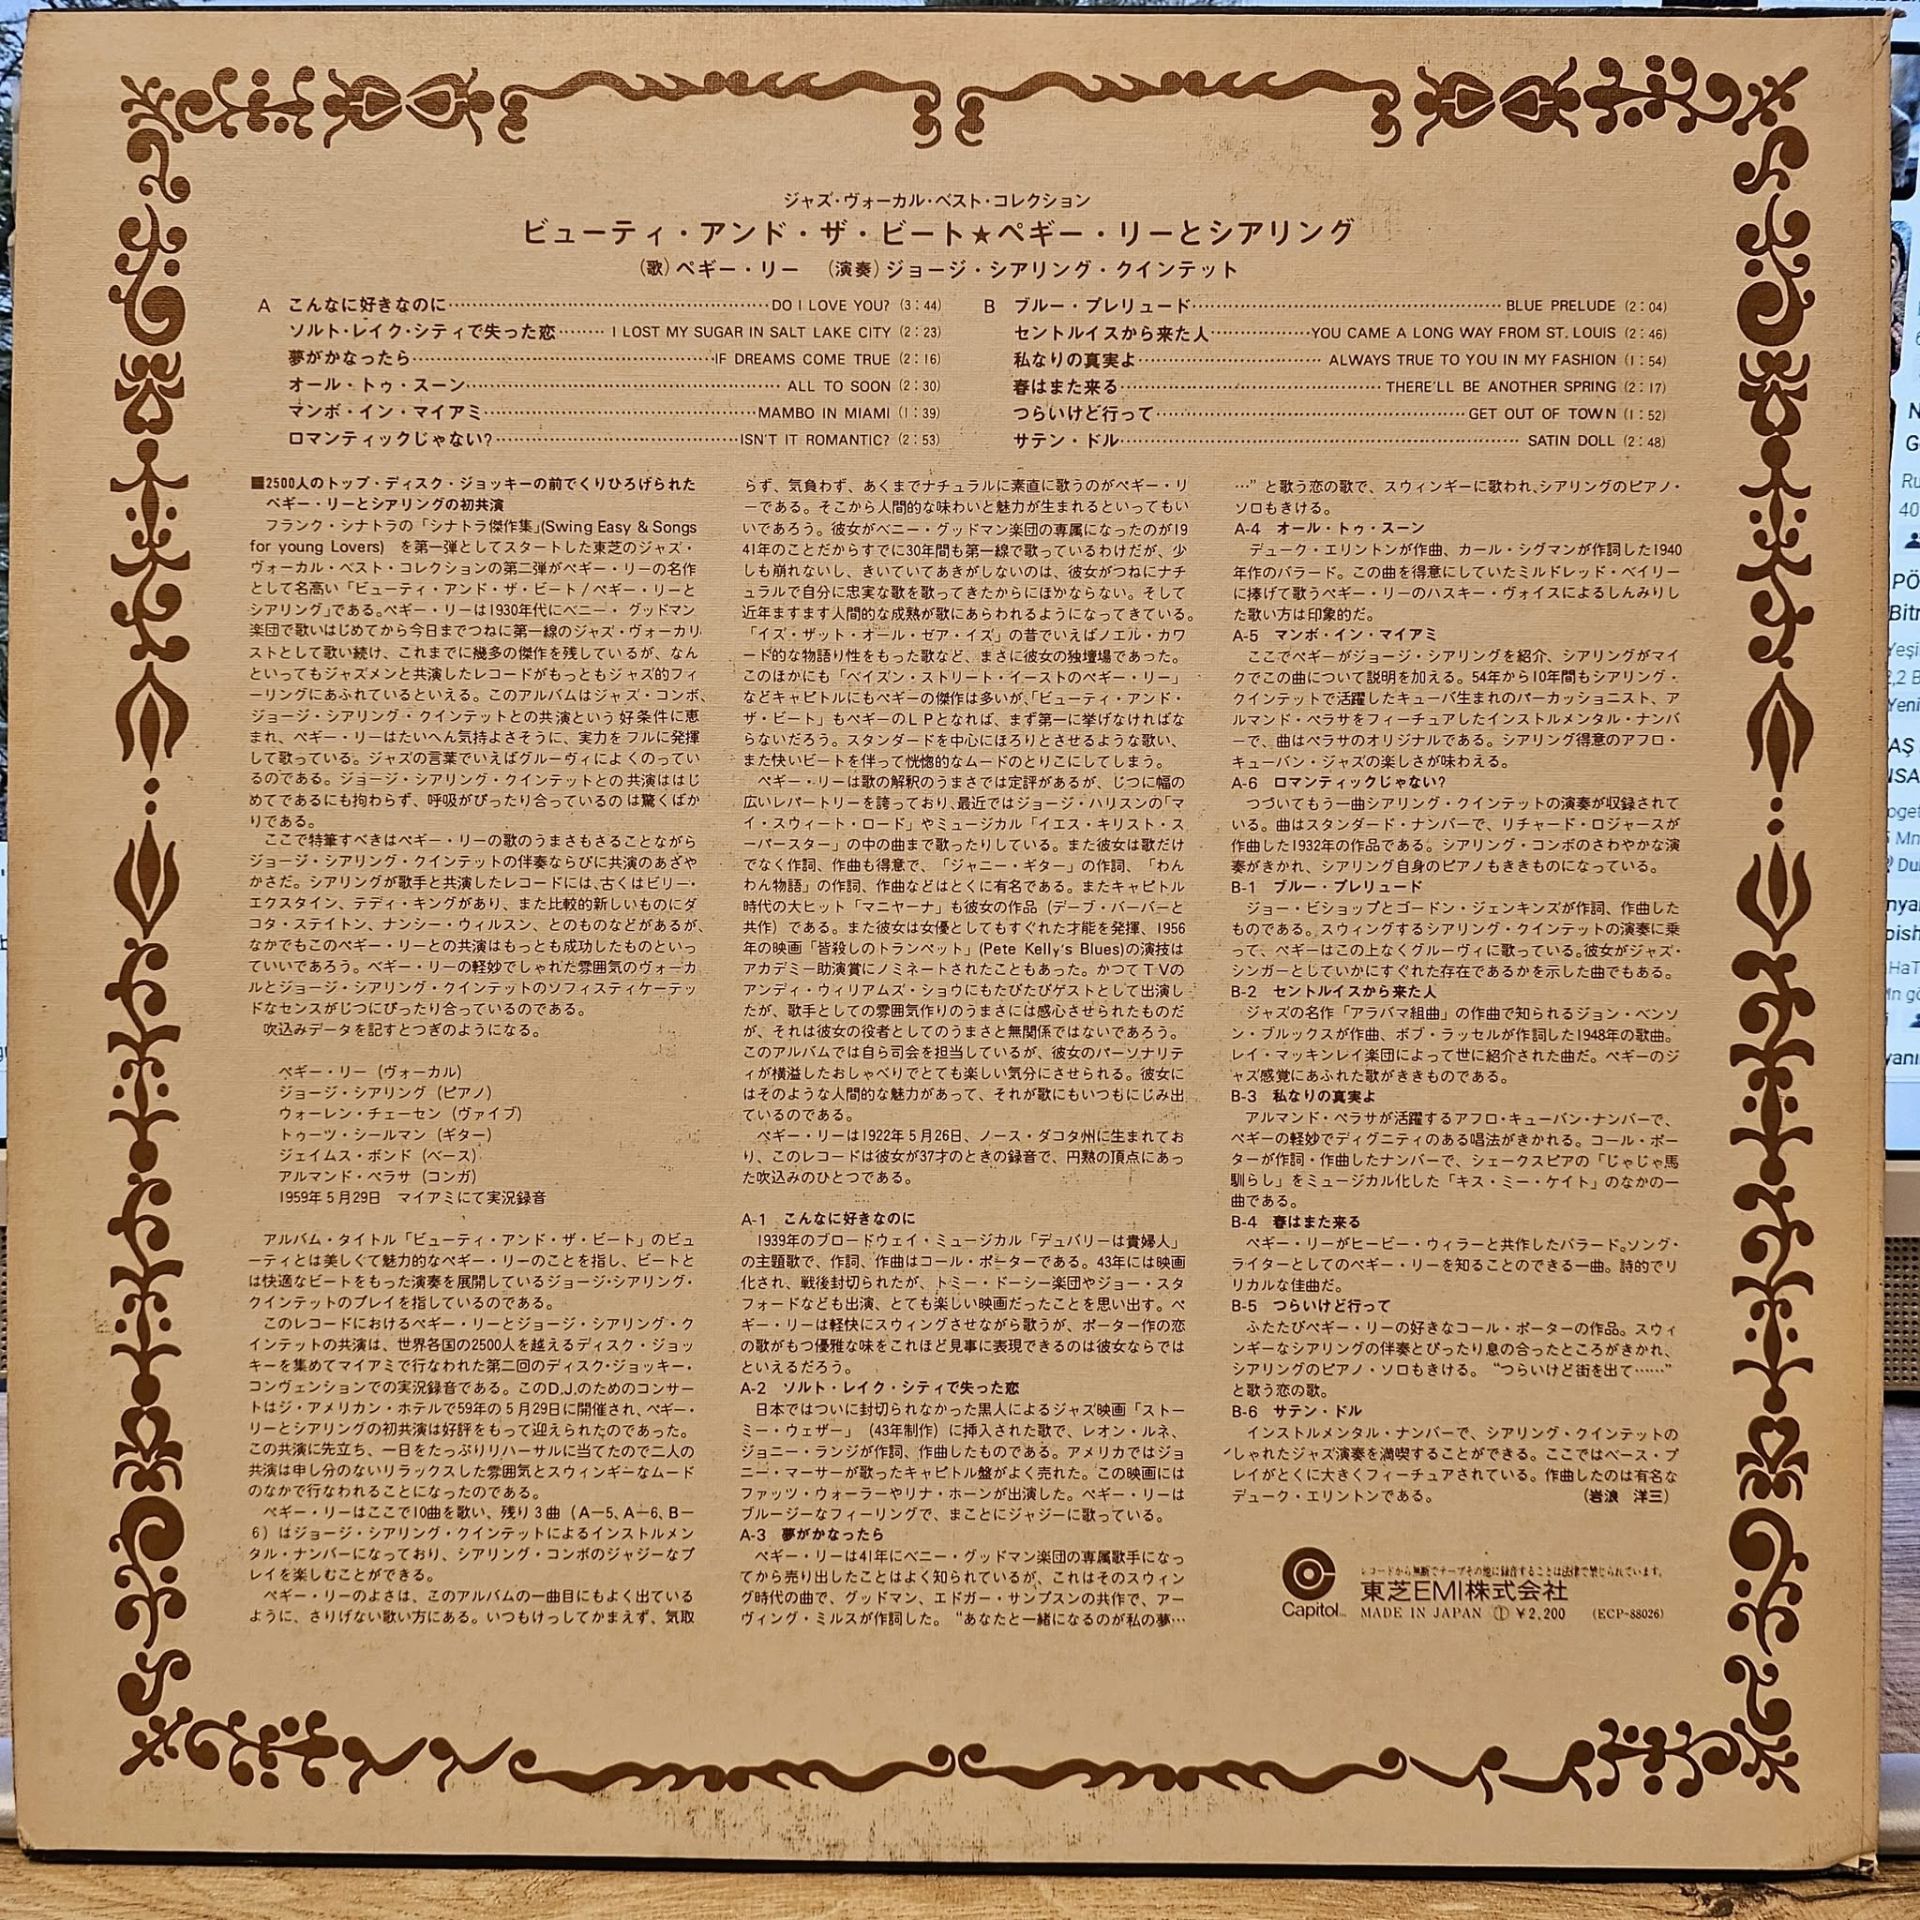 ジャズ・ヴォーカル・ベスト・コレクション
ビューティ・アンド・ザ・ビート★ペギー・リーとシアリング
(歌)ペギー・リー (演奏)ジョージ・シアリング・クインテット
A こんなに好きなのに DO I LOVE YOU? (3:44)
ソルト・レイク・シティで失った恋 I LOST MY SUGAR IN SALT LAKE CITY (2:23)
夢がかなったら IF DREAMS COME TRUE (2:16)
オール・トゥ・スーン ALL TO SOON (2:30)
マンボ・イン・マイアミ MAMBO IN MIAMI (1:39)
ロマンティックじゃない? ISN'T IT ROMANTIC? (2:53)
B ブルー・プレリュード BLUE PRELUDE (2:04)
セントルイスから来た人 YOU CAME A LONG WAY FROM ST. LOUIS (2:46)
私なりの真実よ ALWAYS TRUE TO YOU IN MY FASHION (1:54)
春はまた来る THERE'LL BE ANOTHER SPRING (2:17)
つらいけど行って GET OUT OF TOWN (1:52)
サテン・ドル SATIN DOLL (2:48)
■2500人のトップ・ディスク・ジョッキーの前でくりひろげられた
ペギー・リーとシアリングの初共演
フランク・シナトラの「シナトラ傑作集」(Swing Easy & Songs
for young Lovers) を第一弾としてスタートした東芝のジャズ・
ヴォーカル・ベスト・コレクションの第二弾がペギー・リーの名作
として名高い「ビューティ・アンド・ザ・ビート/ペギー・リーと
シアリング」である。ペギー・リーは1930年代にベニー・グッドマン
楽団で歌いはじめてから今日までつねに第一線のジャズ・ヴォーカリ
ストとして歌い続け、これまでに幾多の傑作を残しているが、なん
といってもジャズメンと共演したレコードがもっともジャズ的フィ
ーリングにあふれているといえる。このアルバムはジャズ・コンボ、
ジョージ・シアリング・クインテットとの共演という好条件に恵
まれ、ペギー・リーはたいへん気持よさそうに、実力をフルに発揮
して歌っている。ジャズの言葉でいえばグルーヴィによくのってい
るのである。ジョージ・シアリング・クインテットとの共演ははじ
めてであるにも拘わらず、呼吸がぴったり合っているのは驚くばか
りである。
ここで特筆すべきはペギー・リーの歌のうまさもさることながら
ジョージ・シアリング・クインテットの伴奏ならびに共演のあざや
かさだ。シアリングが歌手と共演したレコードには、古くはビリー・
エクスタイン、テディ・キングがあり、また比較的新しいものにダ
コタ・ステイトン、ナンシー・ウィルスン、とのものなどがあるが、
なかでもこのペギー・リーとの共演はもっとも成功したものといっ
ていいであろう。ペギー・リーの軽妙でしゃれた雰囲気のヴォーカ
ルとジョージ・シアリング・クインテットのソフィスティケーテッ
ドなセンスがじつにぴったり合っているのである。
吹込みデータを記すとつぎのようになる。
ペギー・リー (ヴォーカル)
ジョージ・シアリング (ピアノ)
ウォーレン・チェーセン (ヴァイブ)
トゥーツ・シールマン (ギター)
ジェイムス・ボンド (ベース)
アルマンド・ペラサ (コンガ)
1959年5月29日 マイアミにて実況録音
アルバム・タイトル「ビューティ・アンド・ザ・ビート」のビュ
ーティとは美しくて魅力的なペギー・リーのことを指し、ビートと
は快適なビートをもった演奏を展開しているジョージ・シアリング・
クインテットのプレイを指しているのである。
このレコードにおけるペギー・リーとジョージ・シアリング・ク
インテットの共演は、世界各国の2500人を越えるディスク・ジョッ
キーを集めてマイアミで行なわれた第二回のディスク・ジョッキー・
コンヴェンションでの実況録音である。このD.J.のためのコンサー
トはジ・アメリカン・ホテルで59年の5月29日に開催され、ペギー・
リーとシアリングの初共演は好評をもって迎えられたのであった。
この共演に先立ち、一日をたっぷりリハーサルに当てたので二人の
共演は申し分のないリラックスした雰囲気とスウィンギーなムード
のなかで行なわれることになったのである。
ペギー・リーはここで10曲を歌い、残り3曲 (A—5、A—6、B—
6) はジョージ・シアリング・クインテットによるインストルメン
タル・ナンバーになっており、シアリング・コンボのジャジーなプ
レイを楽しむことができる。
ペギー・リーのよさは、このアルバムの一曲目にもよく出ている
ように、さりげない歌い方にある。いつもけっしてかまえず、気取
らず、気負わず、あくまでナチュラルに素直に歌うのがペギー・リ
ーである。そこから人間的な味わいと魅力が生まれるといってもい
いであろう。彼女がベニー・グッドマン楽団の専属になったのが19
41年のことだからすでに30年間も第一線で歌っているわけだが、少
しも崩れないし、きいていてあきがしないのは、彼女がつねにナチ
ュラルで自分に忠実な歌を歌ってきたからにほかならない。そして
近年ますます人間的な成熟が歌にあらわれるようになってきている。
「イズ・ザット・オール・ゼア・イズ」の昔でいえばノエル・カワ
ード的な物語り性をもった歌など、まさに彼女の独壇場であった。
このほかにも「ベイズン・ストリート・イーストのペギー・リー」
などキャピトルにもペギーの傑作は多いが、「ビューティ・アンド・
ザ・ビート」もペギーのLPとなれば、まず第一に挙げなければな
らないだろう。スタンダードを中心にほろりとさせるような歌い、
また快いビートを伴って恍惚的なムードのとりこにしてしまう。
ペギー・リーは歌の解釈のうまさでは定評があるが、じつに幅の
広いレパートリーを誇っており、最近ではジョージ・ハリスンの「マ
イ・スウィート・ロード」やミュージカル「イエス・キリスト・ス
ーパースター」の中の曲まで歌ったりしている。また彼女は歌だけ
でなく作詞、作曲も得意で、「ジャニー・ギター」の作詞、「わん
わん物語」の作詞、作曲などはとくに有名である。またキャピトル
時代の大ヒット「マニヤーナ」も彼女の作品 (デーブ・バーバーと
共作) である。また彼女は女優としてもすぐれた才能を発揮、1956
年の映画「皆殺しのトランペット」(Pete Kelly's Blues)の演技は
アカデミー助演賞にノミネートされたこともあった。かつてTVの
アンディ・ウィリアムズ・ショウにもたびたびゲストとして出演し
たが、歌手としての雰囲気作りのうまさには感心させられたものだ
が、それは彼女の役者としてのうまさと無関係ではないであろう。
このアルバムでは自ら司会を担当しているが、彼女のパーソナリテ
ィが横溢したおしゃべりでとても楽しい気分にさせられる。彼女に
はそのような人間的な魅力があって、それが歌にもいつもにじみ出
ているのである。
ペギー・リーは1922年5月26日、ノース・ダコタ州に生まれてお
り、このレコードは彼女が37才のときの録音で、円熟の頂点にあっ
た吹込みのひとつである。
A-1 こんなに好きなのに
1939年のブロードウェイ・ミュージカル「デュバリーは貴婦人」
の主題歌で、作詞、作曲はコール・ポーターである。43年には映画
化され、戦後封切られたが、トミー・ドーシー楽団やジョー・スタ
フォードなども出演、とても楽しい映画だったことを思い出す。ペ
ギー・リーは軽快にスウィングさせながら歌うが、ポーター作の恋
の歌がもつ優雅な味をこれほど見事に表現できるのは彼女ならでは
といえるだろう。
A-2 ソルト・レイク・シティで失った恋
日本ではついに封切られなかった黒人によるジャズ映画「ストー
ミー・ウェザー」 (43年制作) に挿入された歌で、レオン・ルネ、
ジョニー・ランジが作詞、作曲したものである。アメリカではジョ
ニー・マーサーが歌ったキャピトル盤がよく売れた。この映画には
ファッツ・ウォーラーやリナ・ホーンが出演した。ペギー・リーは
ブルージーなフィーリングで、まことにジャジーに歌っている。
A-3 夢がかなったら
ペギー・リーは41年にベニー・グッドマン楽団の専属歌手になっ
てから売り出したことはよく知られているが、これはそのスウィン
グ時代の曲で、グッドマン、エドガー・サンプスンの共作で、アー
ヴィング・ミルスが作詞した。“あなたと一緒になるのが私の夢…
…”と歌う恋の歌で、スウィンギーに歌われ、シアリングのピアノ・
ソロもきける。
A-4 オール・トゥ・スーン
デューク・エリントンが作曲、カール・シグマンが作詞した1940
年作のバラード。この曲を得意にしていたミルドレッド・ベイリー
に捧げて歌うペギー・リーのハスキー・ヴォイスによるしんみりし
た歌い方は印象的だ。
A-5 マンボ・イン・マイアミ
ここでペギーがジョージ・シアリングを紹介、シアリングがマイ
クでこの曲について説明を加える。54年から10年間もシアリング・
クインテットで活躍したキューバ生まれのパーカッショニスト、ア
ルマンド・ペラサをフィーチュアしたインストルメンタル・ナンバ
ーで、曲はペラサのオリジナルである。シアリング得意のアフロ・
キューバン・ジャズの楽しさが味わえる。
A-6 ロマンティックじゃない?
つづいてもう一曲シアリング・クインテットの演奏が収録されて
いる。曲はスタンダード・ナンバーで、リチャード・ロジャースが
作曲した1932年の作品である。シアリング・コンボのさわやかな演
奏がきかれ、シアリング自身のピアノもききものになっている。
B-1 ブルー・プレリュード
ジョー・ビショップとゴードン・ジェンキンズが作詞、作曲した
ものである。スウィングするシアリング・クインテットの演奏に乗
って、ペギーはこの上なくグルーヴィに歌っている。彼女がジャズ・
シンガーとしていかにすぐれた存在であるかを示した曲でもある。
B-2 セントルイスから来た人
ジャズの名作「アラバマ組曲」の作曲で知られるジョン・ベンソ
ン・ブルックスが作曲、ボブ・ラッセルが作詞した1948年の歌曲。
レイ・マッキンレイ楽団によって世に紹介された曲だ。ペギーのジ
ャズ感覚にあふれた歌がききものである。
B-3 私なりの真実よ
アルマンド・ペラサが活躍するアフロ・キューバン・ナンバーで、
ペギーの軽妙でディグニティのある唱法がきかれる。コール・ポー
ターが作詞・作曲したナンバーで、シェークスピアの「じゃじゃ馬
馴らし」をミュージカル化した「キス・ミー・ケイト」のなかの一
曲である。
B-4 春はまた来る
ペギー・リーがヒービー・ウィラーと共作したバラード。ソング・
ライターとしてのペギー・リーを知ることのできる一曲。詩的でリ
リカルな佳曲だ。
B-5 つらいけど行って
ふたたびペギー・リーの好きなコール・ポーターの作品。スウィ
ンギーなシアリングの伴奏とぴったり息の合ったところがきかれ、
シアリングのピアノ・ソロもきける。“つらいけど街を出て……”
と歌う恋の歌。
B-6 サテン・ドル
インストルメンタル・ナンバーで、シアリング・クインテットの
しゃれたジャズ演奏を満喫することができる。ここではベース・プ
レイがとくに大きくフィーチュアされている。作曲したのは有名な
デューク・エリントンである。 (岩浪 洋三)
レコードから無断でテープその他に録音することは法律で禁じられています。
東芝EMI株式会社
Capitol
MADE IN JAPAN Ⓣ ¥2,200 (ECP-88026)